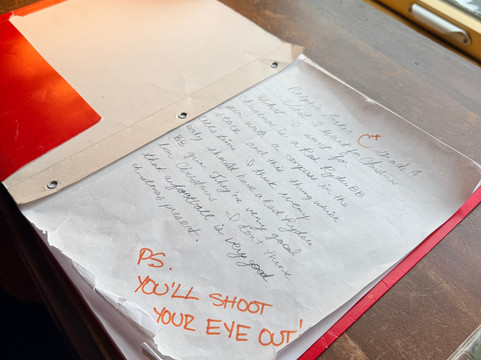 Ralphie Parker Grade 4
C+
What I want for Christmas
What I want for
Christmas is a Red Ryder BB
gun with a compass in the
stock and this thing which
tells time. I think every
body should have a Red Ryder
BB gun. They're very good
for Christmas. I don't think
that a football is very good
Christmas present.
PS.
YOU'LL SHOOT
YOUR EYE OUT!